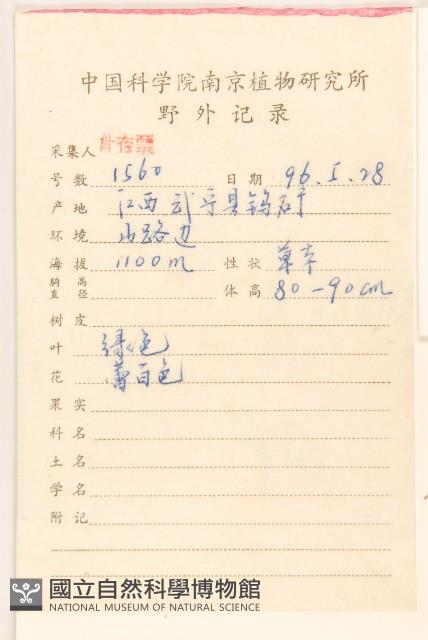 中国科学院南京植物研究所
野外记录
采集人 叶存粟
号数 1560 日期 96.5.28
产地 江西武宁县
环境 山路边
海拔 1100m 性状 草本
胸高直径 体高 80-90cm
树皮
叶 绿色
花 白色
果实
科名
土名
学名
附记
國立自然科學博物館
NATIONAL MUSEUM OF NATURAL SCIENCE